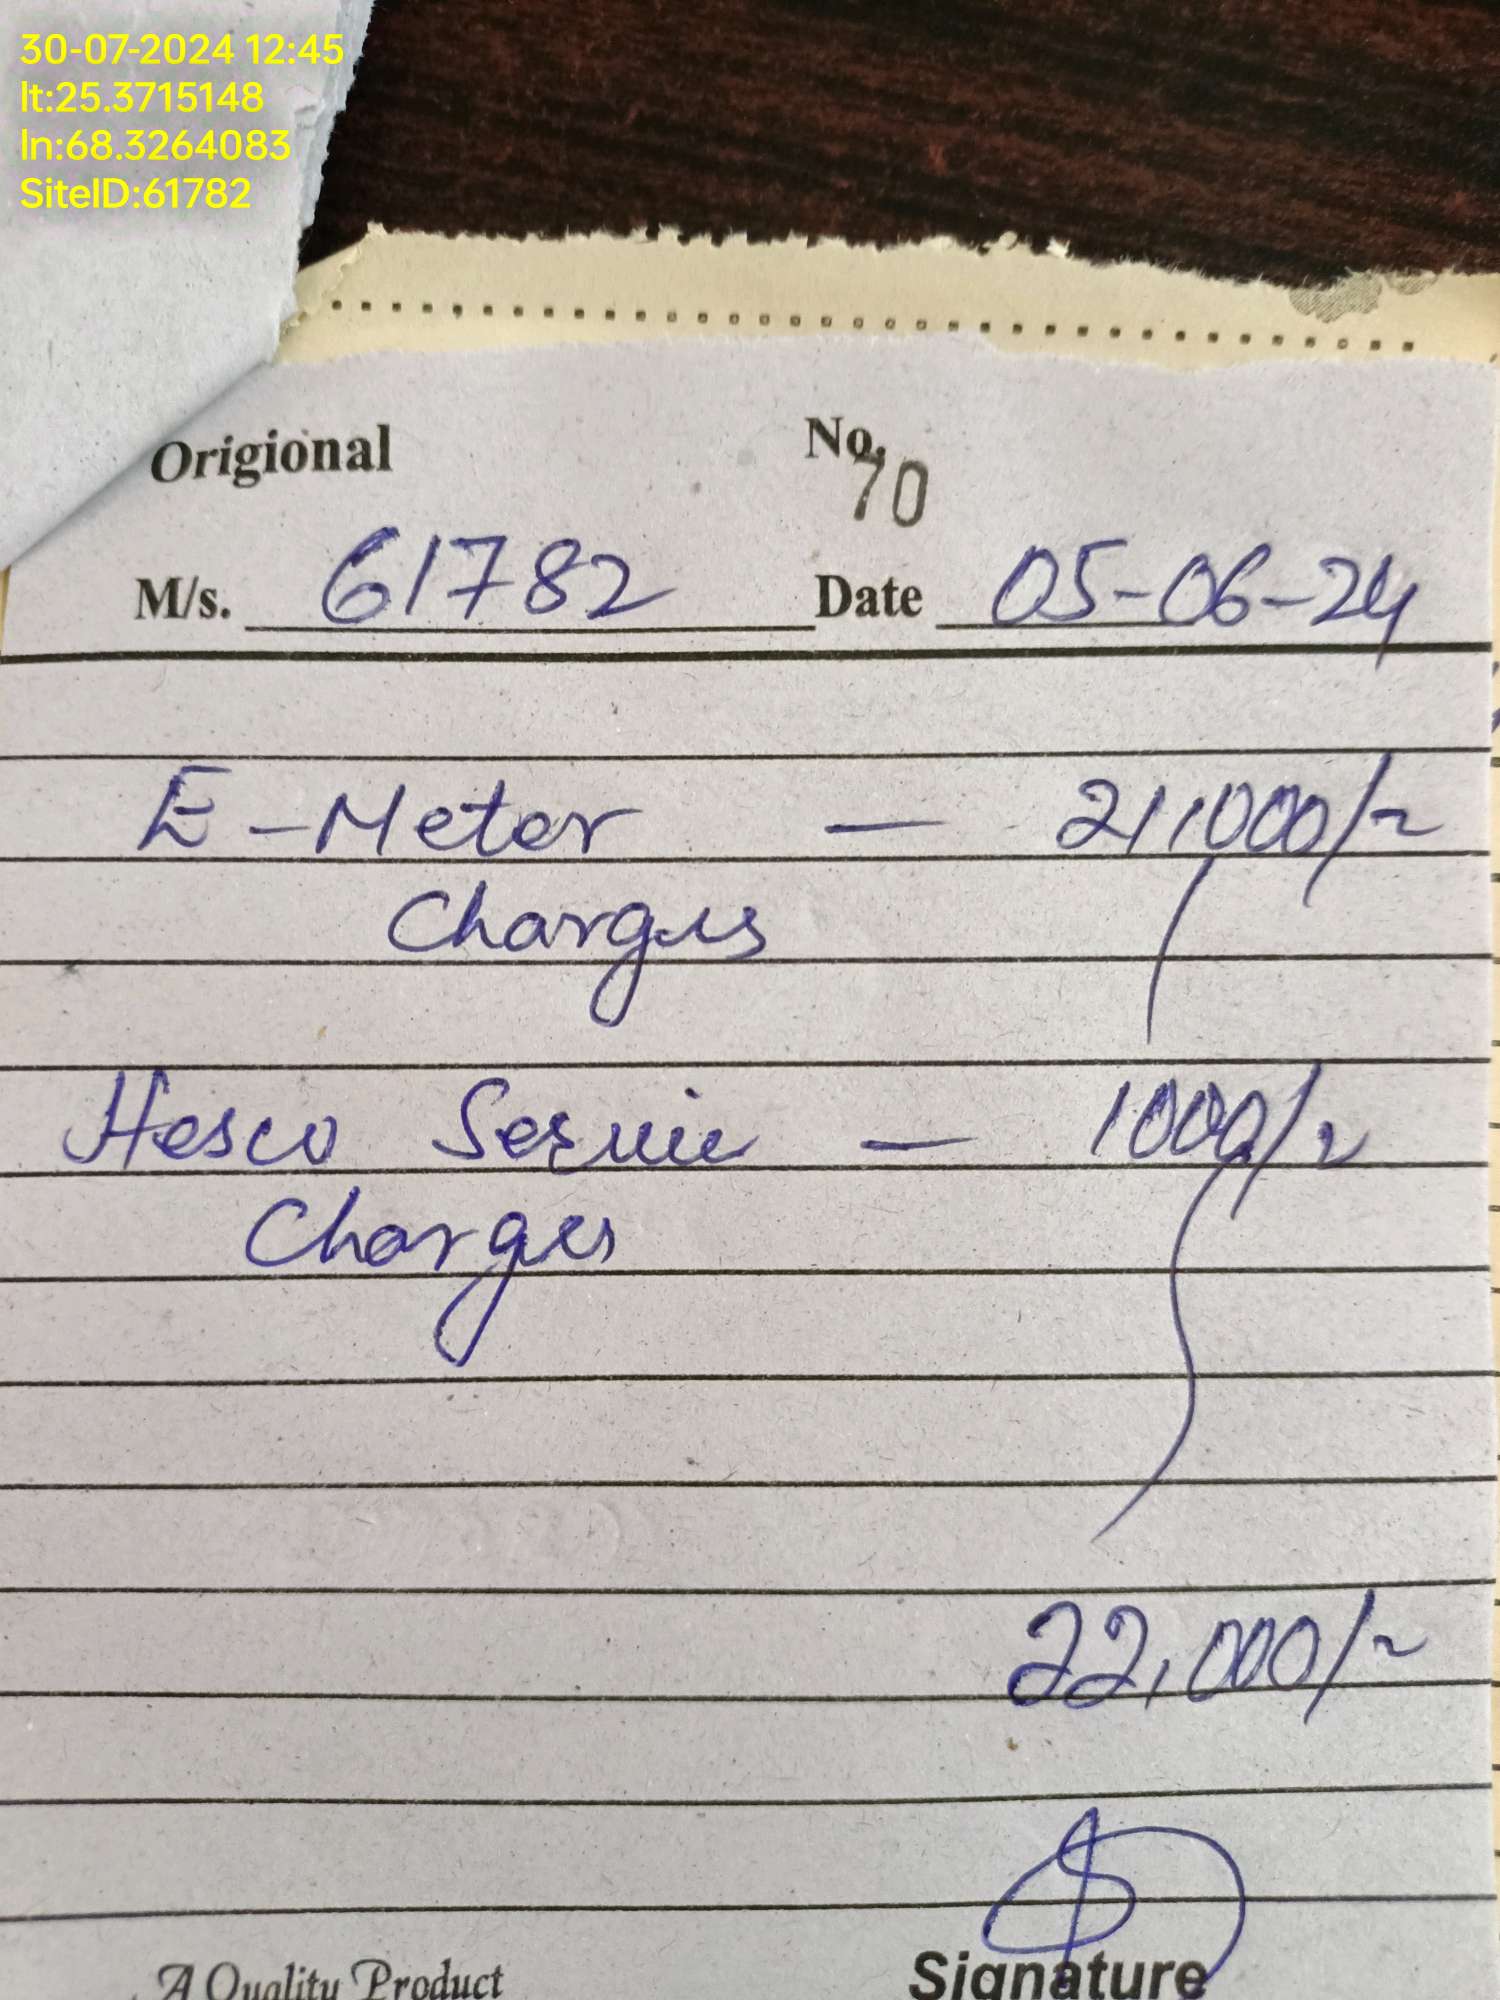 30-07-2024 12:45
lt:25.3715148
ln:68.3264083
SiteID:61782
Origional No. 70
M/s. 61782 Date 05-06-24
E-Meter — 21,000/~
Charges
Hesco Service — 1000/~
Charges
22,000/~
A Quality Product Signature